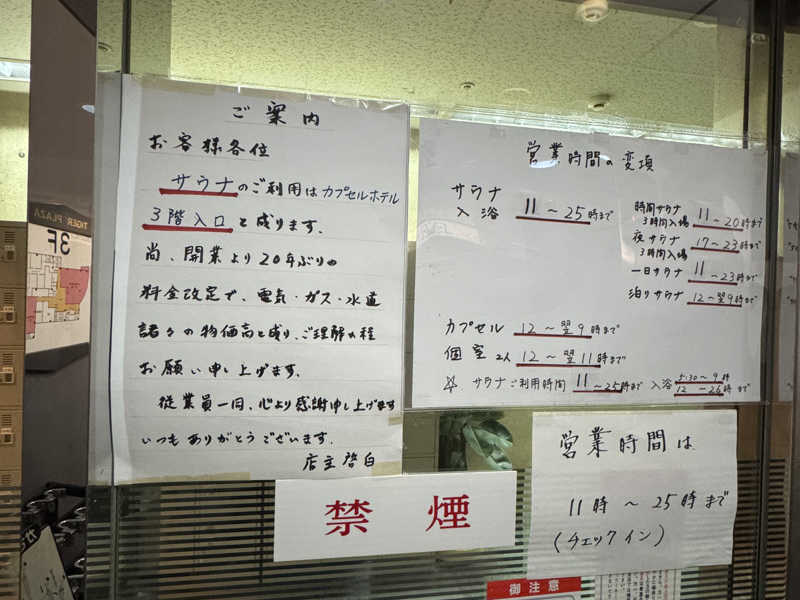 ご案内
お客様各位
サウナのご利用はカプセルホテル
3階入口と成ります.
尚、開業より20年ぶりの
料金改定で、電気・ガス・水道
諸々の物価高と成り、ご理解の程
お願い申し上げます.
従業員一同、心より感謝申し上げます
いつもありがとうございます.
店主啓白
営業時間の変項
サウナ
入浴 11〜25時まで
時間サウナ
3時間入場 11〜20時まで
夜サウナ
3時間入場 17〜23時まで
一日サウナ 11〜23時まで
泊りサウナ 12〜翌9時まで
カプセル 12〜翌9時まで
個室2人 12〜翌11時まで
☆ サウナご利用時間 11〜25時まで 入浴 5:30〜9時
12〜26時まで
営業時間は
11時〜25時まで
(チェックイン)
禁煙
御注意
TIGER PLAZA
3F